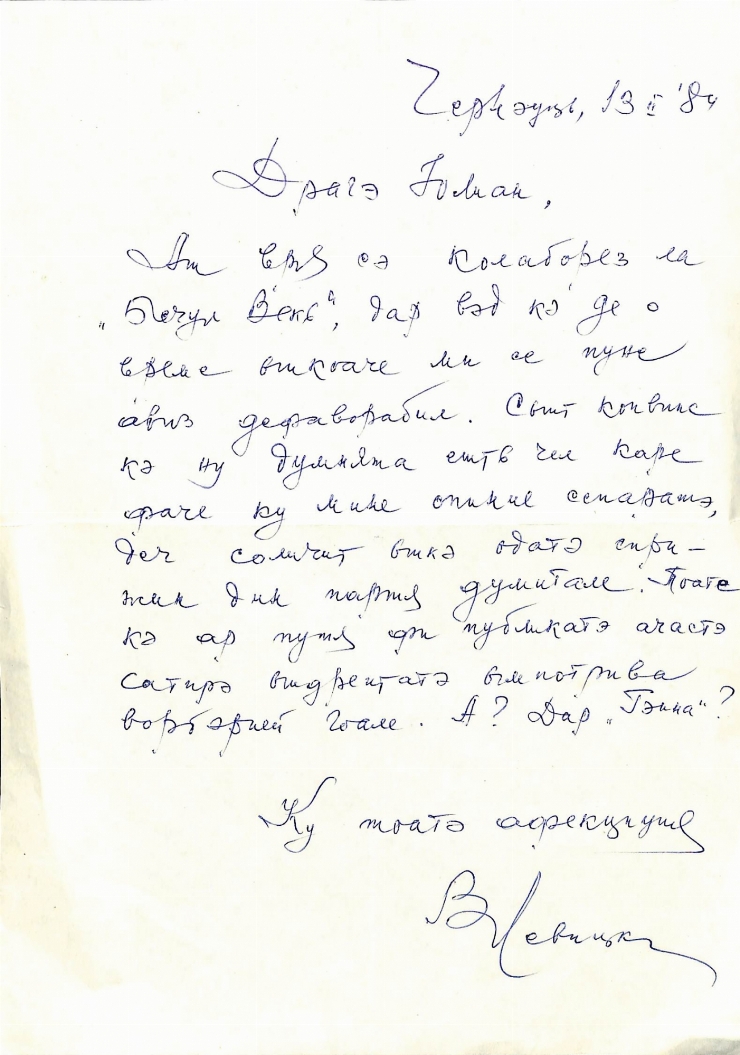 Чернэуць, 13 II '84
Драгэ Юлиан,
Аш вря сэ колаборез ла
„Бечул Векь“, дар вэд кэ де о
время ынкоаче ми се пуне
авиз дефаворабил. Сынт конвинс
кэ ну думнята ешть чел каре
фаче ку мине опиние сепаратэ,
деч соличит ынкэ одатэ спри-
жин дин партя думитале. Поате
кэ ар путя фи публикатэ ачастэ
сатирэ ындрептатэ ымпотрива
ворбэрией гоале. А? Дар „Гэина“?
Ку тоатэ афекциуня
В Левицки